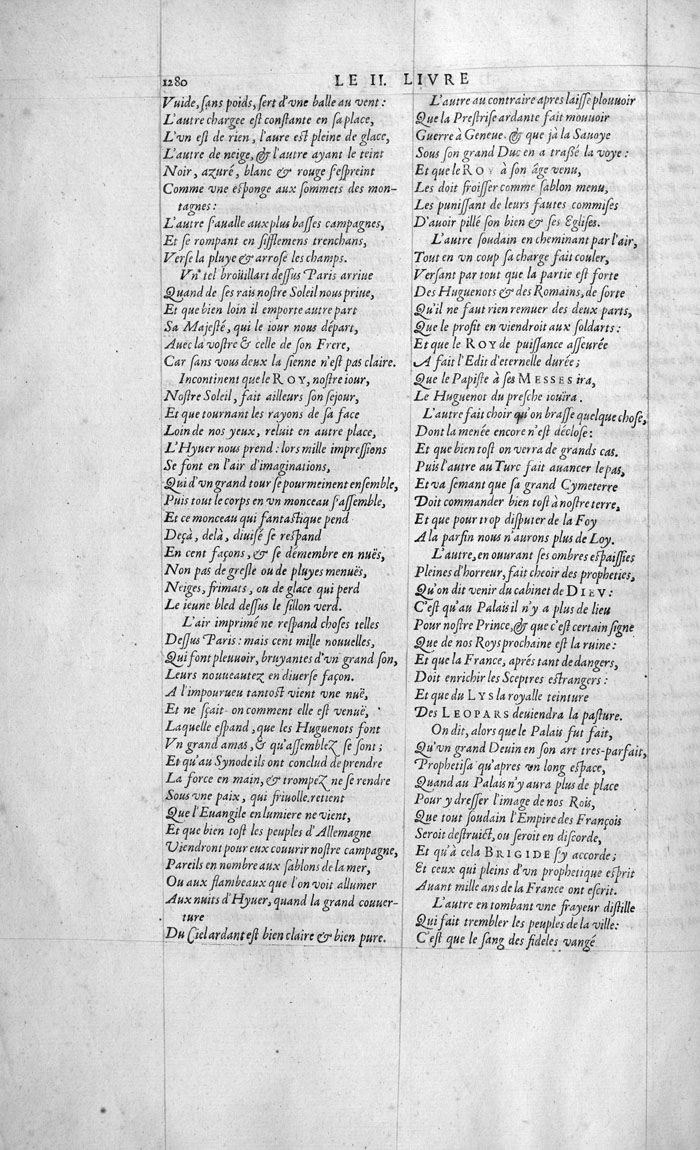 1280
LE II. LIVRE
Vuide, sans poids, sert d'vne balle au vent :
L'autre chargee est constante en sa place,
L'vn est de rien, l'aure est pleine de glace,
L'autre de neige, & l'autre ayant le teint
Noir, azuré, blanc & rouge s'espreint
Comme vne esponge aux sommets des mon-
tagnes :
L'autre s'aualle aux plus basses campagnes,
Et se rompant en sifflemens trenchans,
Verse la pluye & arrose les champs.
Vn tel broüillart dessus Paris arriue
Quand de ses rais nostre Soleil nous priue,
Et que bien loin il emporte autre part
Sa Majesté, qui le iour nous départ,
Auec la vostre & celle de son Frere,
Car sans vous deux la sienne n'est pas claire.
Incontinent que le ROY, nostre iour,
Nostre Soleil, fait ailleurs son sejour,
Et que tournant les rayons de sa face
Loin de nos yeux, reluit en autre place,
L'Hyuer nous prend : lors mille impressions
Se font en l'air d'imaginations,
Qui d'vn grand tour se pourmeinent ensemble,
Puis tout le corps en vn monceau s'assemble,
Et ce monceau qui fantastique pend
Deçà, delà, diuisé se respand
En cent façons, & se démembre en nuës,
Non pas de gresle ou de pluyes menuës,
Neiges, frimats, ou de glace qui perd
Le ieune bled dessus le sillon verd.
L'air imprimé ne respand choses telles
Dessus Paris : mais cent mille nouuelles,
Qui font pleuuoir, bruyantes d'vn grand son,
Leurs nouueautez en diuerse façon.
A l'impourueu tantost vient vne nuë,
Et ne sçait-on comment elle est venuë,
Laquelle espand, que les Huguenots font
Vn grand amas, & qu'assemblez se sont ;
Et qu'au Synode ils ont conclud de prendre
La force en main, & trompez ne se rendre
Sous vne paix, qui friuolle retient
Que l'Euangile en lumiere ne vient,
Et que bien tost les peuples d'Allemagne
Viendront pour eux couurir nostre campagne,
Pareils en nombre aux sablons de la mer,
Ou aux flambeaux que l'on voit allumer
Aux nuits d'Hyuer, quand la grand couuer-
ture
Du Ciel ardant est bien claire & bien pure.
L'autre au contraire apres laisse plouuoir
Que la Prestrise ardante fait mouuoir
Guerre à Geneue, & que jà la Sauoye
Sous son grand Duc en a trassé la voye :
Et que le ROY à son âge venu,
Les doit froisser comme sablon menu,
Les punissant de leurs fautes commises
D'auoir pillé son bien & ses Eglises.
L'autre soudain en cheminant par l'air,
Tout en vn coup sa charge fait couler,
Versant par tout que la partie est forte
Des Huguenots & des Romains, de sorte
Qu'il ne faut rien remuer des deux parts,
Que le profit en viendroit aux soldarts :
Et que le ROY de puissance asseurée
A fait l'Edit d'eternelle durée ;
Que le Papiste à ses MESSES ira,
Le Huguenot du presche iouïra.
L'autre fait choir qu'on brasse quelque chose,
Dont la menée encore n'est déclose :
Et que bien tost on verra de grands cas.
Puis l'autre au Turc fait auancer le pas,
Et va semant que sa grand Cymeterre
Doit commander bien tost à nostre terre,
Et que pour trop disputer de la Foy
A la parfin nous n'aurons plus de Loy.
L'autre, en ouurant ses ombres espaissies
Pleines d'horreur, fait cheoir des propheties,
Qu'on dit venir du cabinet de DIEV :
C'est qu'au Palais il n'y a plus de lieu
Pour nostre Prince, & que c'est certain signe
Que de nos Roys prochaine est la ruine :
Et que la France, aprés tant de dangers,
Doit enrichir les Sceptres estrangers :
Et que du LYS la royalle teinture
Des LEOPARS deuiendra la pasture.
On dit, alors que le Palais fut fait,
Qu'vn grand Deuin en son art tres-parfait,
Prophetisa qu'apres vn long espace,
Quand au Palais n'y aura plus de place
Pour y dresser l'image de nos Rois,
Que tout soudain l'Empire des François
Seroit destruict, ou seroit en discorde,
Et qu'à cela BRIGIDE s'y accorde ;
Et ceux qui pleins d'vn prophetique esprit
Auant mille ans de la France ont escrit.
L'autre en tombant vne frayeur distille
Qui fait trembler les peuples de la ville :
C'est que le sang des fideles vangé